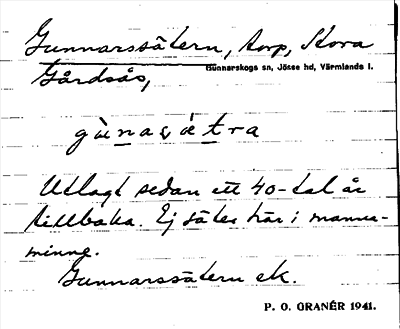 Gunnarssätern, torp, Stora
Gunnarskogs sn, Jösse hd, Värmlands l.
Gårdsås,
gùnasǽtra
Utlagt sedan ett 40-tal år
tillbaka. Ej säter här i mannа-
minne.
Gunnarssätern ek.
P. O. GRANÉR 1941.